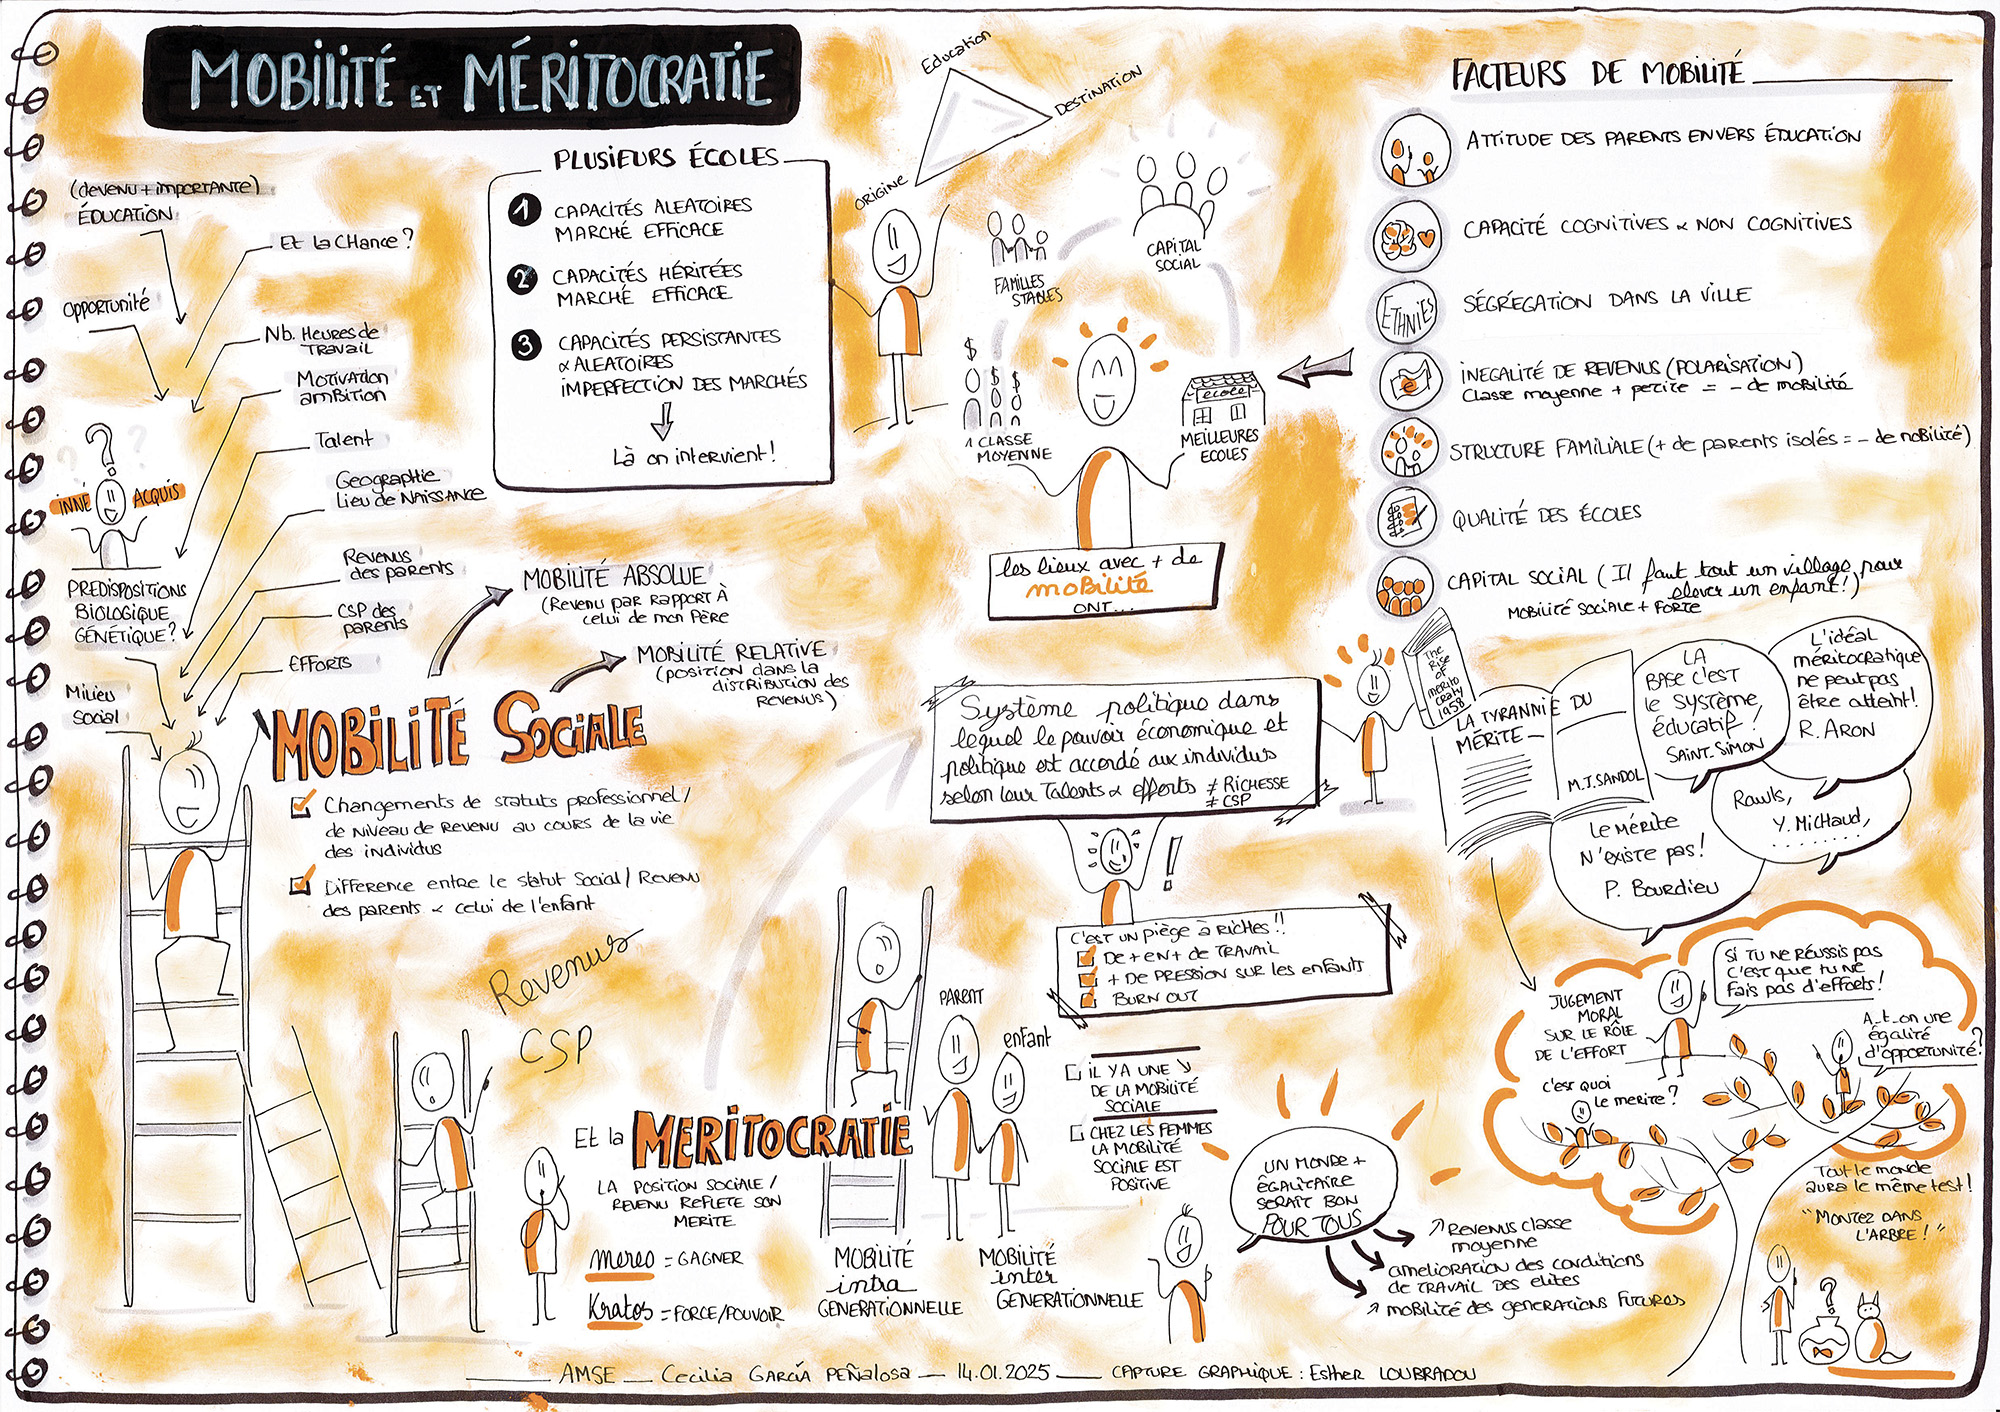 MOBILITÉ ET MÉRITOCRATIE
(devenu + importante)
ÉDUCATION
Et la CHance ?
Opportunité
Nb. Heures de
Travail
Motivation
ambition
Talent
Geographie
Lieu de Naissance
INNÉ
ACQUIS
PREDISPOSITIONS
BIOLOGIQUE
GÉNÉTIQUE?
Revenus
des parents
CSP des
parents
EFFORTS
Milieu
Social
PLUSIEURS ÉCOLES
1 CAPACITÉS ALEATOIRES
MARCHÉ EFFICACE
2 CAPACITÉS HÉRITÉES
MARCHÉ EFFICACE
3 CAPACITÉS PERSISTANTES
& ALEATOIRES
IMPERFECTION DES MARCHÉS
Là on intervient!
Education
DESTINATION
ORIGINE
FAMILLES
STABLES
CAPITAL
SOCIAL
$
$ $
1 CLASSE
MOYENNE
école
MEILLEURES
ECOLES
les lieux avec + de
mobilité
ONT...
FACTEURS DE MOBILITÉ
ATTITUDE DES PARENTS ENVERS ÉDUCATION
CAPACITÉ COGNITIVES & NON COGNITIVES
ETHNIES
SÉGRÉGATION DANS LA VILLE
e
INEGALITÉ DE REVENUS (POLARISATION)
Classe moyenne + petite = - de mobilité
STRUCTURE FAMILIALE (+ de parents isolés = - de mobilité)
QUALITÉ DES ÉCOLES
CAPITAL SOCIAL ( Il faut tout un village pour
elever un enfant!)
MOBILITÉ SOCIALE + FORTE
MOBILITÉ ABSOLUE
(Revenu par rapport À
celui de mon Père
MOBILITÉ RELATIVE
(position dans la
distribution des
Revenus)
MOBILITÉ SOCIALE
Changements de statuts professionnel /
de niveau de revenu au cours de la vie
des individus
Difference entre le statut Social / Revenu
des parents & celui de l'enfant
Revenus
CSP
Et la MERITOCRATIE
LA POSITION SOCIALE /
REVENU REFLETE SON
MERITE
mereo = GAGNER
Kratos = FORCE/POUVOIR
Système politique dans
lequel le pouvoir économique et
politique est accordé aux individus
selon leur Talents & efforts ≠ RICHESSE
≠ CSP
!
C'est un piège à riches!!
De + en + de TRAVAIL
+ DE PRESSION SUR LES ENFANTS
BURN OUT
PARENT
enfant
MOBILITÉ
intra
GENERATIONNELLE
MOBILITÉ
inter
GENERATIONNELLE
IL Y A UNE ↘
DE LA MOBILITÉ
SOCIALE
CHEZ LES FEMMES
LA MOBILITÉ
SOCIALE EST
POSITIVE
UN MONDE +
ÉGALITAIRE
SERAIT BON
POUR TOUS
↗ REVENUS CLASSE
moyenne
amelioration des conditions
de TRAVAIL DES ELITES
↗ mobilité des generations Futures
The
Rise
OF
merito
craty
1958
LA TYRANNIE DU
MÉRITE
M.J.SANDOL
LA
BASE C'EST
le SYSTÈME
éducatif !
SAINT-SIMON
L'idéal
méritocratique
ne peut pas
être atteint!
R. ARON
Rawls,
Y. MICHAUD,
.......
Le MÉRITE
N'existe pas!
P. Bourdieu
JUGEMENT
MORAL
SUR LE RÔLE
DE L'EFFORT
SI TU NE RÉUSSIS PAS
C'EST que tu ne
Fais pas d'efforts!
A_t_on une
égalité
d'opportunité?
c'est quoi
le merite ?
Tout le monde
aura le même test!
"MONTEZ DANS
L'ARBRE!"
?
AMSE — Cecilia GARCÍA PEÑALOSA — 14.01.2025 — CAPTURE GRAPHIQUE : Esther LOUBRADOU